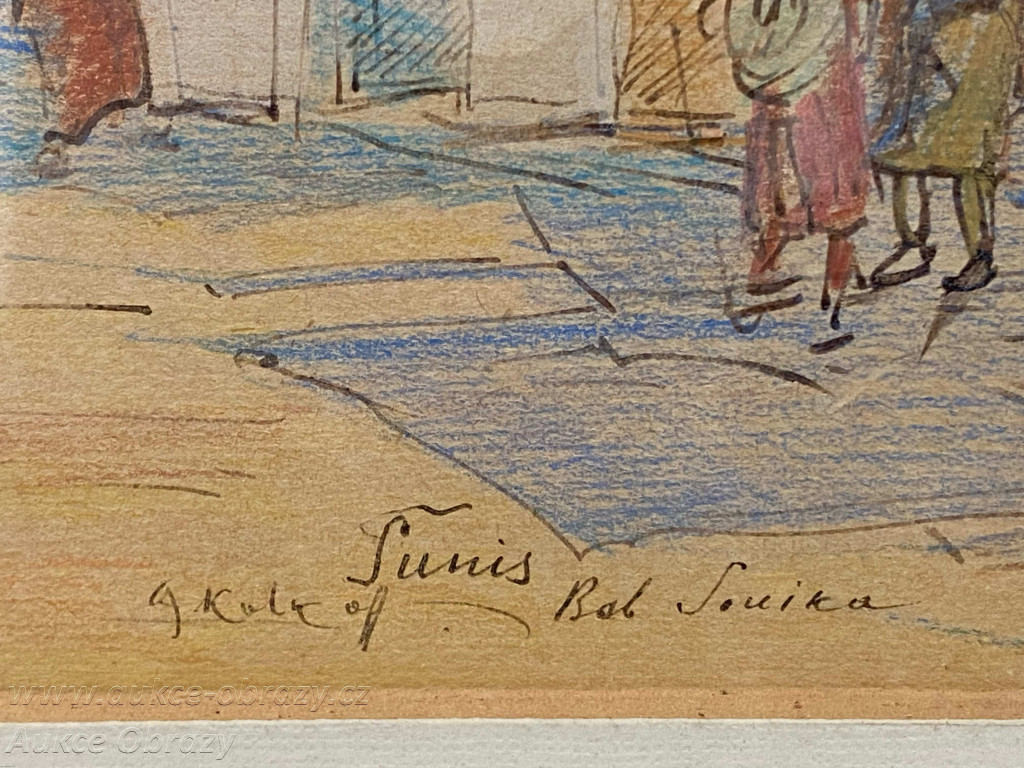 Tunis
Bab Souika
www.aukce-obrazy.cz
Aukce Obrazy